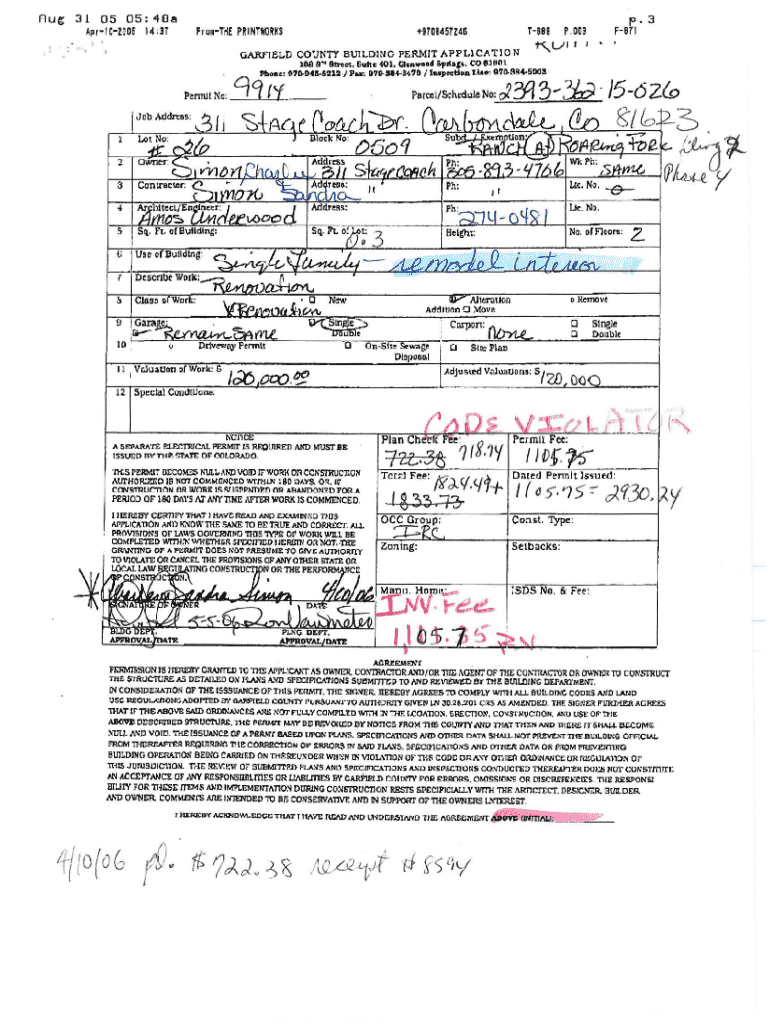 Aug 31 05 05:48a p.3
Apr-10-2006 14:37 From-THE PRINTWORKS +9708457246 T-888 P.003 F-871
GARFIELD COUNTY BUILDING PERMIT APPLICATION
108 8th Street, Suite 401, Glenwood Springs, CO 81601
Phone: 970-945-8212 / Fax: 970-384-3470 / Inspection Line: 970-384-5003
Permit No: 9914 Parcel/Schedule No: 2393-362-15-026
Job Address: 311 StageCoach Dr. Carbondale, Co 81623
1 Lot No: # 26 Block No: 0509 Subd./Exemption: RANCH At ROARING FORK filing
2 Owner: Simon, Charlie Address 311 Stagecoach Ph: 305-893-4766 Wk Ph: SAME Phase 4
3 Contractor: Simon Sandra Address: " Ph: " Lic. No. 0
4 Architect/Engineer: Amos Underwood Address: Ph: 274-0481 Lic. No.
5 Sq. Ft. of Building: Sq. Ft. of Lot: 0.3 Height: No. of Floors: 2
6 Use of Building: Single Family - remodel interior
7 Describe Work: Renovation
8 Class of Work: X Renovation New Alteration Remove
Addition Move
9 Garage: Remain SAME Single Double Carport: None Single Double
10 Driveway Permit On-Site Sewage Disposal Site Plan
11 Valuation of Work: $ 120,000.00 Adjusted Valuations: $ 120,000
12 Special Conditions:
CODE VIOLATOR
NOTICE
A SEPARATE ELECTRICAL PERMIT IS REQUIRED AND MUST BE
ISSUED BY THE STATE OF COLORADO.
THIS PERMIT BECOMES NULL AND VOID IF WORK OR CONSTRUCTION
AUTHORIZED IS NOT COMMENCED WITHIN 180 DAYS, OR IF
CONSTRUCTION OR WORK IS SUSPENDED OR ABANDONED FOR A
PERIOD OF 180 DAYS AT ANY TIME AFTER WORK IS COMMENCED.
I HEREBY CERTIFY THAT I HAVE READ AND EXAMINED THIS
APPLICATION AND KNOW THE SAME TO BE TRUE AND CORRECT. ALL
PROVISIONS OF LAWS GOVERNING THIS TYPE OF WORK WILL BE
COMPLETED WITHIN WHETHER SPECIFIED HEREIN OR NOT. THE
GRANTING OF A PERMIT DOES NOT PRESUME TO GIVE AUTHORITY
TO VIOLATE OR CANCEL THE PROVISIONS OF ANY OTHER STATE OR
LOCAL LAW REGULATING CONSTRUCTION OR THE PERFORMANCE
OF CONSTRUCTION.
Sandra Simon 4/10/06
SIGNATURE OF OWNER DATE
5-5-06
BLDG DEPT. PLNG DEPT.
APPROVAL/DATE APPROVAL/DATE
Plan Check Fee: 722.38 718.74 Permit Fee: 1105.75
Total Fee: 1824.49+ 1833.73 Dated Permit Issued: 1105.75 = 2930.24
OCC Group: IRC Const. Type:
Zoning: Setbacks:
Manu. Home: ISDS No. & Fee:
INV. Fee
1,105.75
AGREEMENT
PERMISSION IS HEREBY GRANTED TO THE APPLICANT AS OWNER, CONTRACTOR AND/OR THE AGENT OF THE CONTRACTOR OR OWNER TO CONSTRUCT
THE STRUCTURE AS DETAILED ON PLANS AND SPECIFICATIONS SUBMITTED TO AND REVIEWED BY THE BUILDING DEPARTMENT.
IN CONSIDERATION OF THE ISSSUANCE OF THIS PERMIT, THE SIGNER, HEREBY AGREES TO COMPLY WITH ALL BUILDING CODES AND LAND
USE REGULATIONS ADOPTED BY GARFIELD COUNTY PURSUANT TO AUTHORITY GIVEN IN 30.28.201 CRS AS AMENDED. THE SIGNER FURTHER AGREES
THAT IF THE ABOVE SAID ORDINANCES ARE NOT FULLY COMPLIED WITH IN THE LOCATION, ERECTION, CONSTRUCTION, AND USE OF THE
ABOVE DESCRIBED STRUCTURE, THE PERMIT MAY BE REVOKED BY NOTICE FROM THE COUNTY AND THAT THEN AND THERE IT SHALL BECOME
NULL AND VOID. THE ISSUANCE OF A PERMIT BASED UPON PLANS, SPECIFICATIONS AND OTHER DATA SHALL NOT PREVENT THE BUILDING OFFICIAL
FROM THEREAFTER REQUIRING THE CORRECTION OF ERRORS IN SAID PLANS, SPECIFICATIONS AND OTHER DATA OR FROM PREVENTING
BUILDING OPERATION BEING CARRIED ON THEREUNDER WHEN IN VIOLATION OF THIS CODE OR ANY OTHER ORDINANCE OR REGULATION OF
THIS JURISDICTION. THE REVIEW OF SUBMITTED PLANS AND SPECIFICATIONS AND INSPECTIONS CONDUCTED THEREAFTER DOES NOT CONSTITUTE
AN ACCEPTANCE OF ANY RESPONSIBILITIES OR LIABILITIES BY GARFIELD COUNTY FOR ERRORS, OMISSIONS OR DISCREPANCIES. THE RESPONSI
BILITY FOR THESE ITEMS AND IMPLEMENTATION DURING CONSTRUCTION RESTS SPECIFICIALLY WITH THE ARTICTECT, DESIGNER, BUILDER,
AND OWNER. COMMENTS ARE INTENDED TO BE CONSERVATIVE AND IN SUPPORT OF THE OWNERS INTEREST.
I HEREBY ACKNOWLEDGE THAT I HAVE READ AND UNDERSTAND THE AGREEMENT ABOVE (INITIAL):
4/10/06 pd. $722.38 receipt # 8594